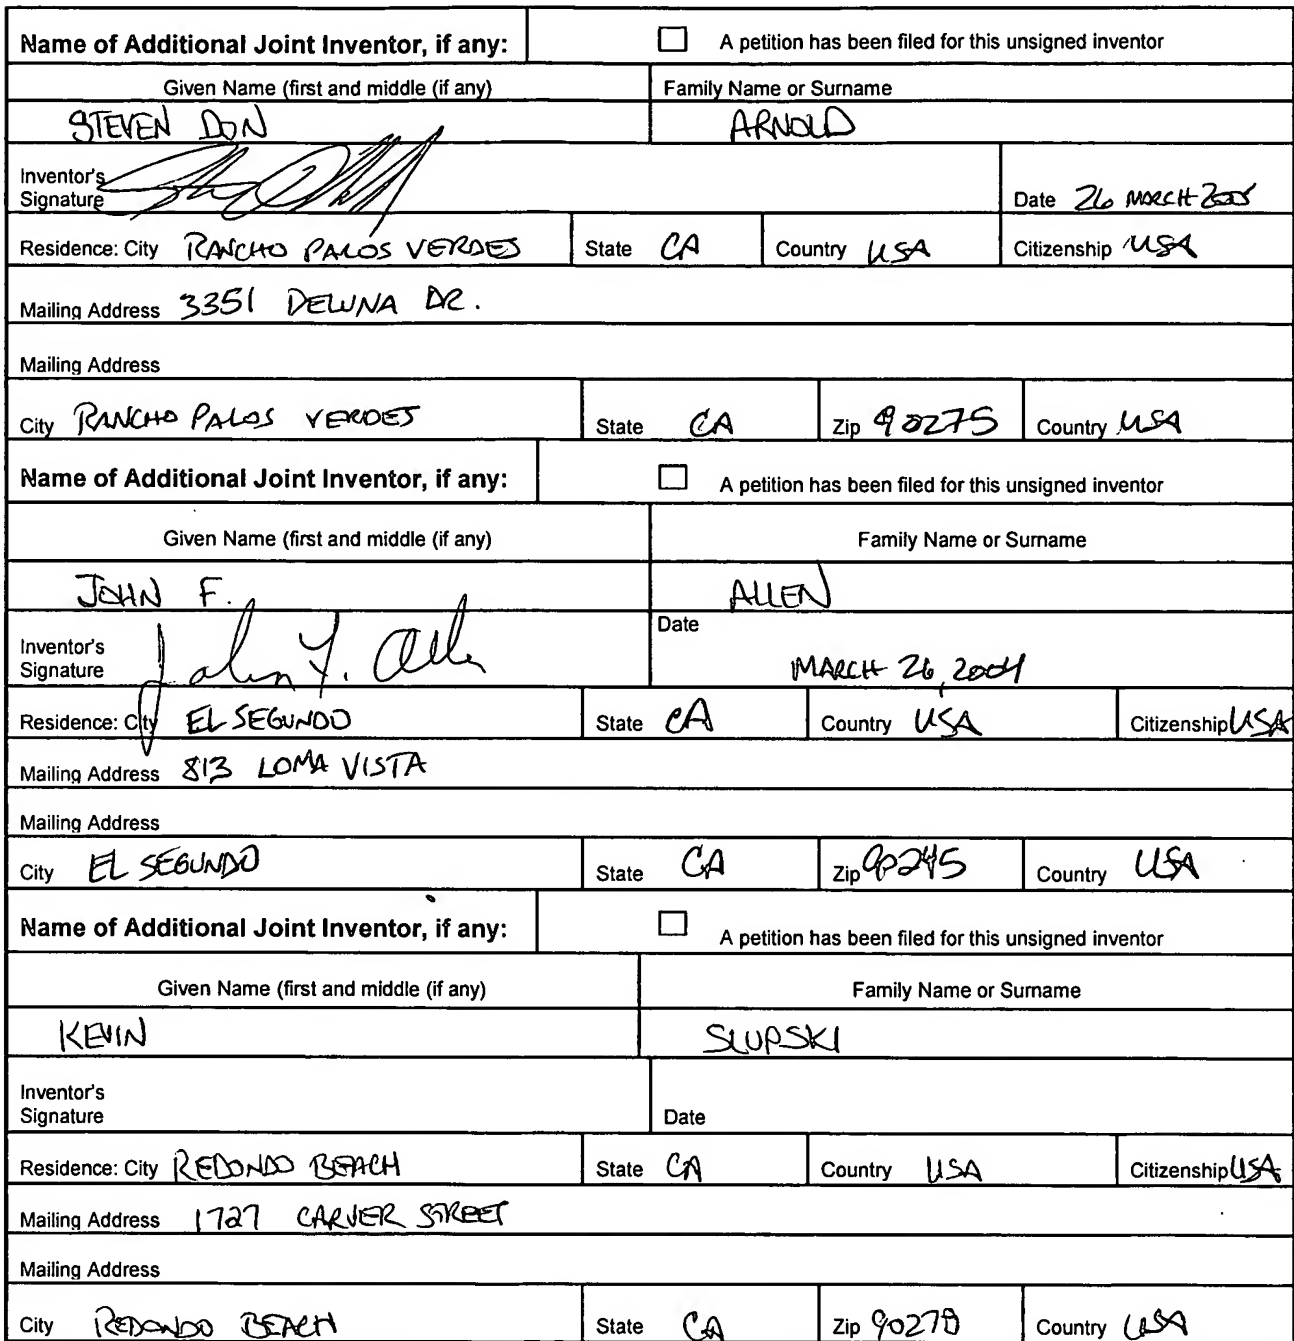 Name of Additional Joint Inventor, if any: A petition has been filed for this unsigned inventor
Given Name (first and middle (if any) Family Name or Surname
STEVEN DON ARNOLD
Inventor's
Signature Date 26 MARCH
Residence: City RANCHO PALOS VERDES State CA Country USA Citizenship USA
Mailing Address 3351 DELUNA DR.
Mailing Address
City RANCHO PALOS VERDES State CA Zip 90275 Country USA
Name of Additional Joint Inventor, if any: A petition has been filed for this unsigned inventor
Given Name (first and middle (if any) Family Name or Surname
JOHN F. ALLEN
Inventor's Date
Signature John F. Allen MARCH 26, 2004
Residence: City EL SEGUNDO State CA Country USA Citizenship USA
Mailing Address 813 LOMA VISTA
Mailing Address
City EL SEGUNDO State CA Zip 90245 Country USA
Name of Additional Joint Inventor, if any: A petition has been filed for this unsigned inventor
Given Name (first and middle (if any) Family Name or Surname
KEVIN SLUPSKI
Inventor's
Signature Date
Residence: City REDONDO BEACH State CA Country USA Citizenship USA
Mailing Address 1727 CARVER STREET
Mailing Address
City REDONDO BEACH State CA Zip 90278 Country USA